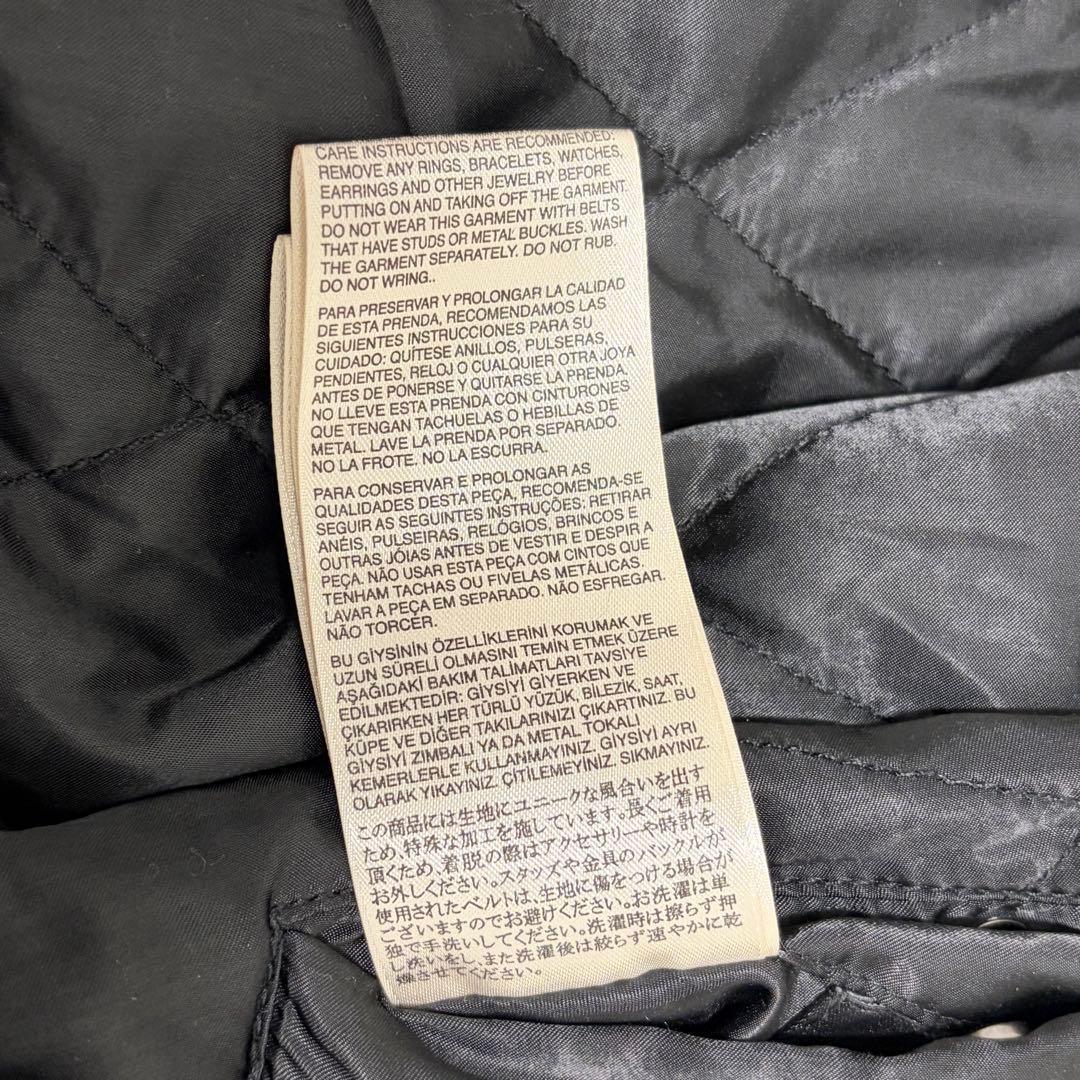 CARE INSTRUCTIONS ARE RECOMMENDED:
REMOVE ANY RINGS, BRACELETS, WATCHES,
EARRINGS AND OTHER JEWELRY BEFORE
PUTTING ON AND TAKING OFF THE GARMENT.
DO NOT WEAR THIS GARMENT WITH BELTS
THAT HAVE STUDS OR METAL BUCKLES. WASH
THE GARMENT SEPARATELY. DO NOT RUB.
DO NOT WRING..
PARA PRESERVAR Y PROLONGAR LA CALIDAD
DE ESTA PRENDA, RECOMENDAMOS LAS
SIGUIENTES INSTRUCCIONES PARA SU
CUIDADO: QUÍTESE ANILLOS, PULSERAS,
PENDIENTES, RELOJ O CUALQUIER OTRA JOYA
ANTES DE PONERSE Y QUITARSE LA PRENDA.
NO LLEVE ESTA PRENDA CON CINTURONES
QUE TENGAN TACHUELAS O HEBILLAS DE
METAL. LAVE LA PRENDA POR SEPARADO.
NO LA FROTE. NO LA ESCURRA.
PARA CONSERVAR E PROLONGAR AS
QUALIDADES DESTA PEÇA, RECOMENDA-SE
SEGUIR AS SEGUINTES INSTRUÇÕES: RETIRAR
ANÉIS, PULSEIRAS, RELÓGIOS, BRINCOS E
OUTRAS JÓIAS ANTES DE VESTIR E DESPIR A
PEÇA. NÃO USAR ESTA PEÇA COM CINTOS QUE
TENHAM TACHAS OU FIVELAS METÁLICAS.
LAVAR A PEÇA EM SEPARADO. NÃO ESFREGAR.
NÃO TORCER.
BU GİYSİNİN ÖZELLİKLERİNİ KORUMAK VE
UZUN SÜRELİ OLMASINI TEMİN ETMEK ÜZERE
AŞAĞIDAKİ BAKIM TALİMATLARI TAVSİYE
EDİLMEKTEDİR: GİYSİYİ GİYERKEN VE
ÇIKARIRKEN HER TÜRLÜ YÜZÜK, BİLEZİK, SAAT,
KÜPE VE DİĞER TAKILARINIZI ÇIKARTINIZ. BU
GİYSİYİ ZIMBALI YA DA METAL TOKALI
KEMERLERLE KULLANMAYINIZ. GİYSİYİ AYRI
OLARAK YIKAYINIZ. ÇİTİLEMEYİNİZ. SIKMAYINIZ.
この商品には生地にユニークな風合いを出す
ため、特殊な加工を施しています。長くご着用
頂くため、着脱の際はアクセサリーや時計を
お外しください。スタッズや金具のバックルが
使用されたベルトは、生地に傷をつける場合が
ございますのでお避けください。お洗濯は単
独で手洗いしてください。洗濯時は擦らず押
し洗いをし、また洗濯後は絞らず速やかに乾
燥させてください。